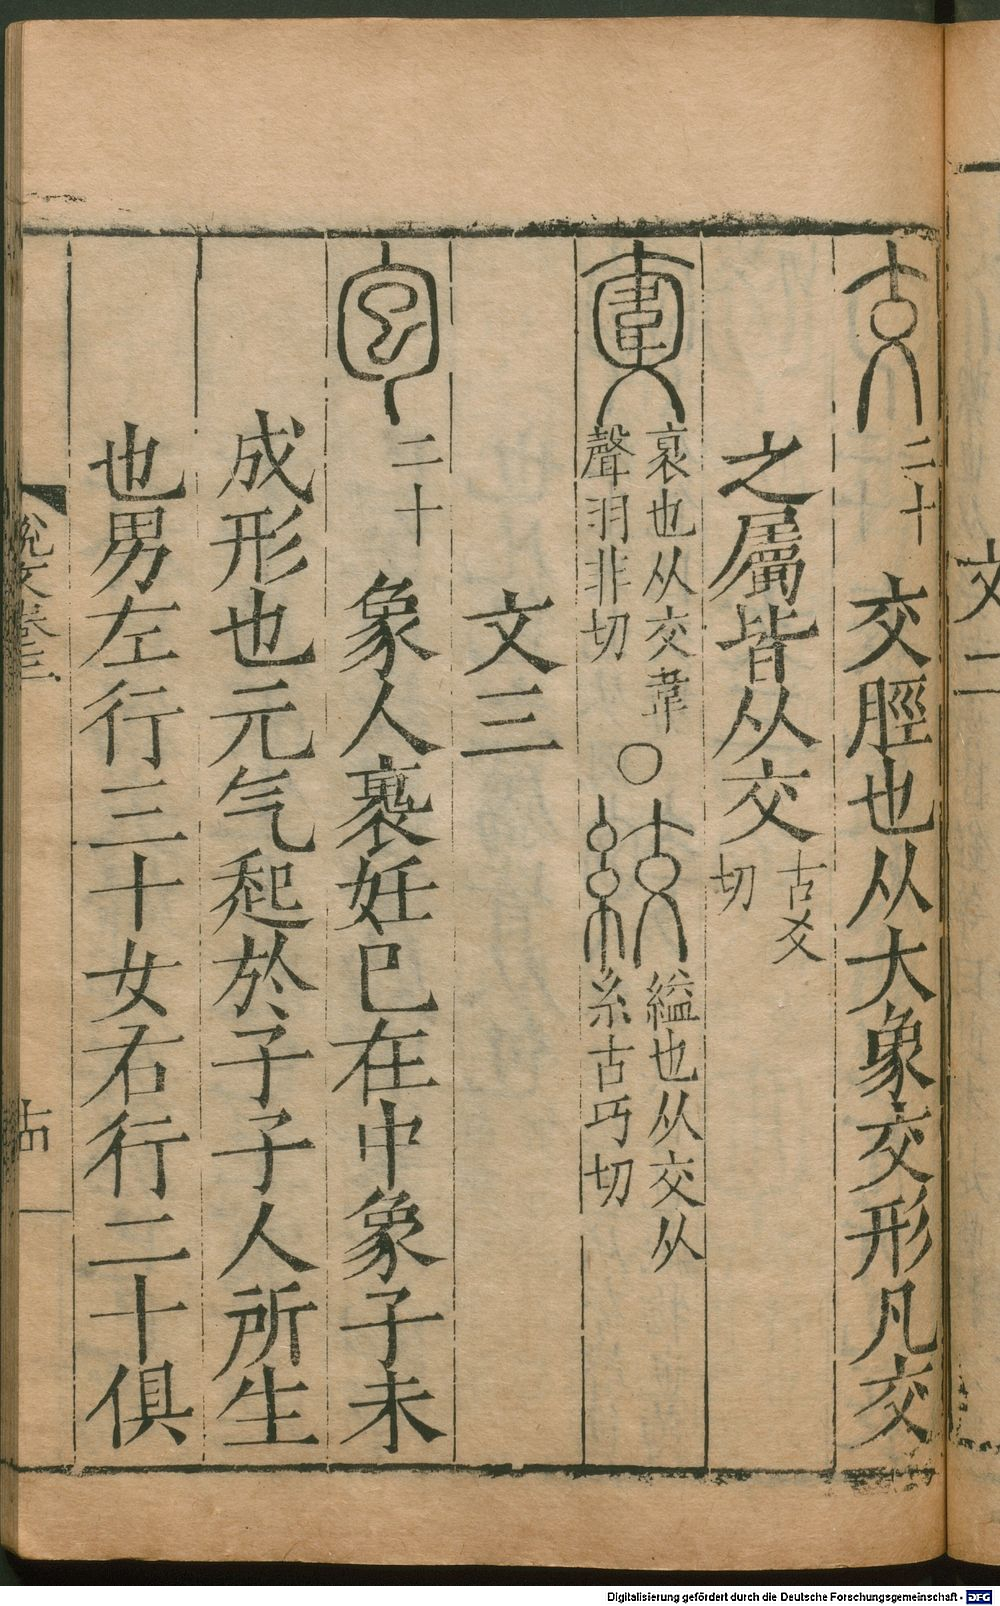 交 二十 交脛也从大象交形凡交
之屬皆从交 古爻切
𡙈 褱也从交韋聲羽非切〇絞 縊也从交从糸古巧切
文三
包 二十 象人褢妊巳在中象子未
成形也元气起於子子人所生
也男左行三十女右行二十俱
文二
Digitalisierung gefördert durch die Deutsche Forschungsgemeinschaft - DFG